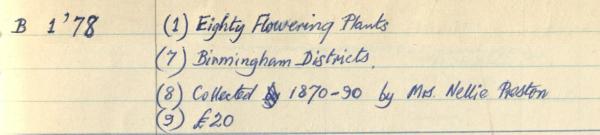 B 1'78 (1) Eighty Flowering Plants
(7) Birmingham Districts.
(8) Collected 1870-90 by Mrs. Nellie Preston
(9) £20